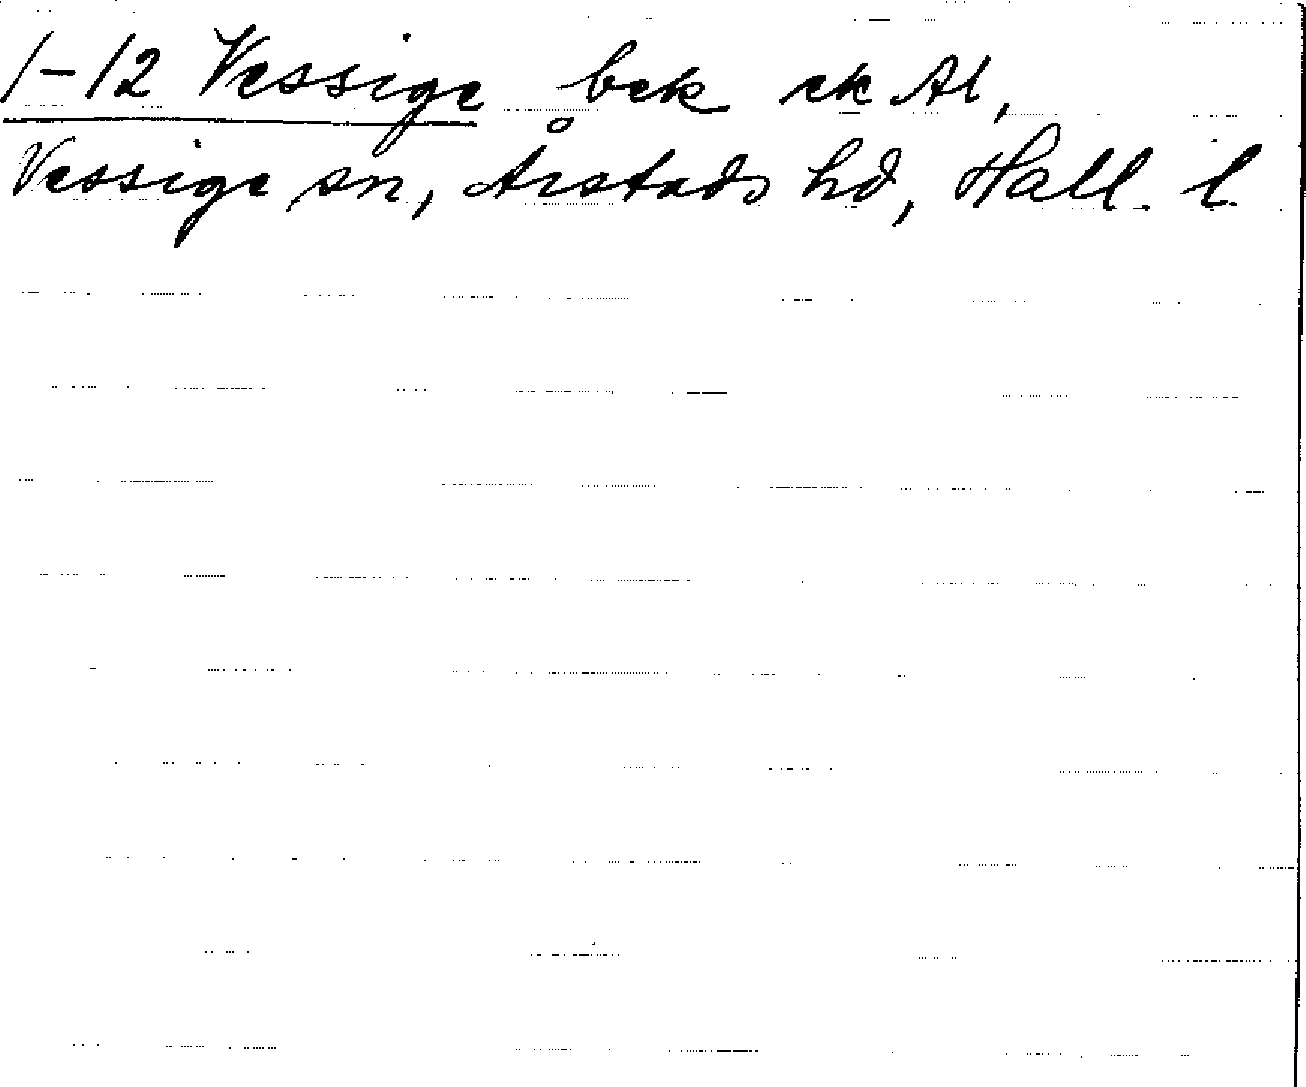 1-12 Vessige bek ek Al,
Vessige sn, Årstads hd, Hall. l.